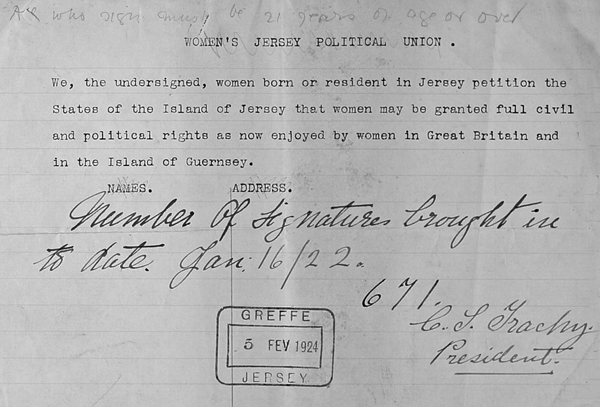 All who sign must be 21 years of age or over
WOMEN'S JERSEY POLITICAL UNION .
We, the undersigned, women born or resident in Jersey petition the
States of the Island of Jersey that women may be granted full civil
and political rights as now enjoyed by women in Great Britain and
in the Island of Guernsey.
NAMES. ADDRESS.
Number of Signatures brought in
to date. Jan: 16/22.
671.
C. S. Trachy.
President.
GREFFE
5 FEV 1924
JERSEY